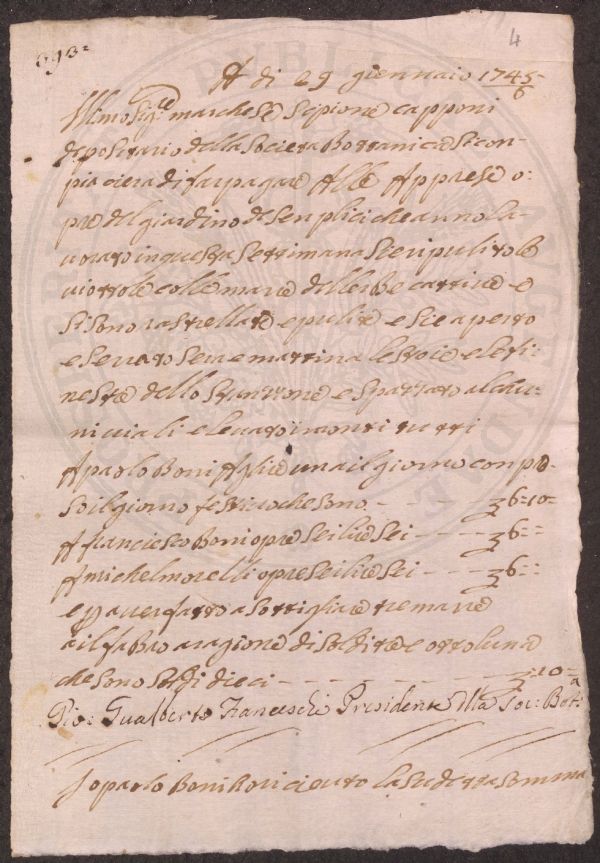 693=
4
A di 29 giennaio 1745/6
Illmo Sigre marchese Sipione capponi
depositario della Societa Bottanica Si con
piaciera di far pagare Alle Apprese o:
pre del giardino de Senplici che anno la
vorato in questa Settimana Si e ripulito le
viottole colle marre dalle erbe cattive e
Si sono rastrellate e pulite e Si e aperto
e Serato Sera e mattina le Stoie e le fi:
nestre dello Stanzone e Spazzato alchu
ni viali e levato i monti tutti
A paolo Boni A lire una il giorno conpre
So il giorno festivo che sono - - - - 6=10=
A franciesco Boni opre Sei lire Sei - - - - 6=:
A michel morelli opre Sei lire Sei - - - - 6=:
e p aver fatto asottigliare tre marre
a il fabro a ragione di Soldi tre e otto luna
che sono Soldi dieci - - - - - - - =:10=
Gio: Gualberto Franceschi Presidente della Soc: Bot:a
Io paolo Boni ho riceuto la Sudetta Somma